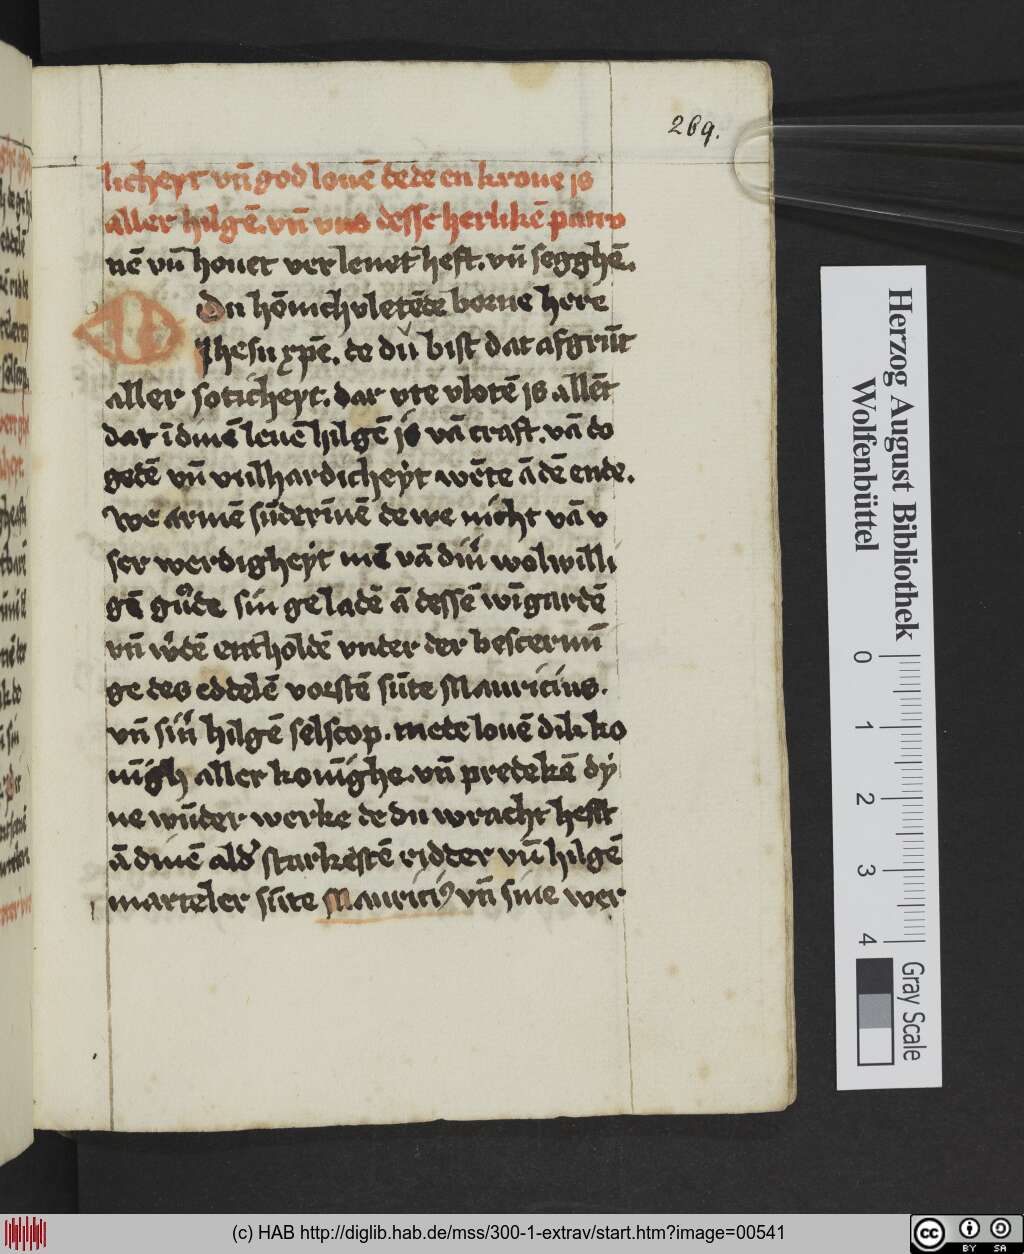 269.
licheyt vn̄ god louē dede en krone is
aller hilgē. vn̄ vns desse herlikē patro
nē vn̄ houet verlenet heft. vn̄ segghē.
O Du hōnichvletēde borne here
Jhesu xp̄e. de du bist dat afgrūt
aller soticheyt. dar vte vlotē is allēt
dat ī dinē leuē hilgē is vā craft. vā do
gedē vn̄ vulhardicheyt wēte ā dē ende.
We armē sūderinē de we nicht vā v
ser werdigheyt mē vā diner wolwilli
gē gude sin geladē ā dessē wīgardē
vn̄ werdē entholdē vnder der beschermī
ge des eddelē vorstē sūte Mauricius.
vn̄ siner hilgē selscop. mete louē dik ko
nīgh aller konīghe. vn̄ predekē dy
ne wūder werke de du wracht hefst
ā dinē alder starkestē ridder vn̄ hilgē
marteler sūte Mauriciꝰ vn̄ sine wer
Herzog August Bibliothek
Wolfenbüttel
0 1 2 3 4
Gray Scale
(c) HAB http://diglib.hab.de/mss/300-1-extrav/start.htm?image=00541
cc BY SA